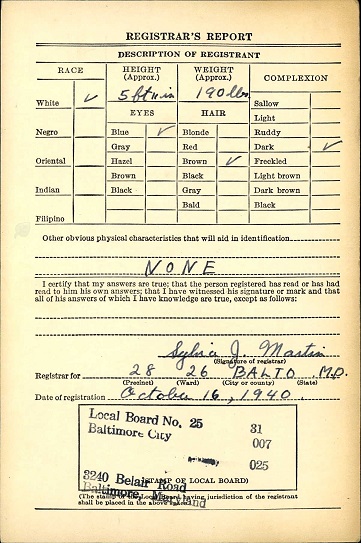 REGISTRAR'S REPORT
DESCRIPTION OF REGISTRANT
RACE
HEIGHT (Approx.)
WEIGHT (Approx.)
COMPLEXION
5 ft 11 in
190 lbs
EYES
HAIR
White ✓
Negro
Oriental
Indian
Filipino
Blue ✓
Gray
Hazel
Brown
Black
Blonde
Red
Brown ✓
Black
Gray
Bald
Sallow
Light
Ruddy
Dark ✓
Freckled
Light brown
Dark brown
Black
Other obvious physical characteristics that will aid in identification
NONE
I certify that my answers are true; that the person registered has read or has had
read to him his own answers; that I have witnessed his signature or mark and that
all of his answers of which I have knowledge are true, except as follows:
Sylvia J. Martin
(Signature of registrar)
Registrar for 28 26 BALTO. M.D.
(Precinct) (Ward) (City or county) (State)
Date of registration October 16, 1940.
Local Board No. 25 31
Baltimore City 007
025
3240 Belair Road
(STAMP OF LOCAL BOARD)
Baltimore, Maryland
(The stamp of the Local Board having jurisdiction of the registrant
shall be placed in the above space.)